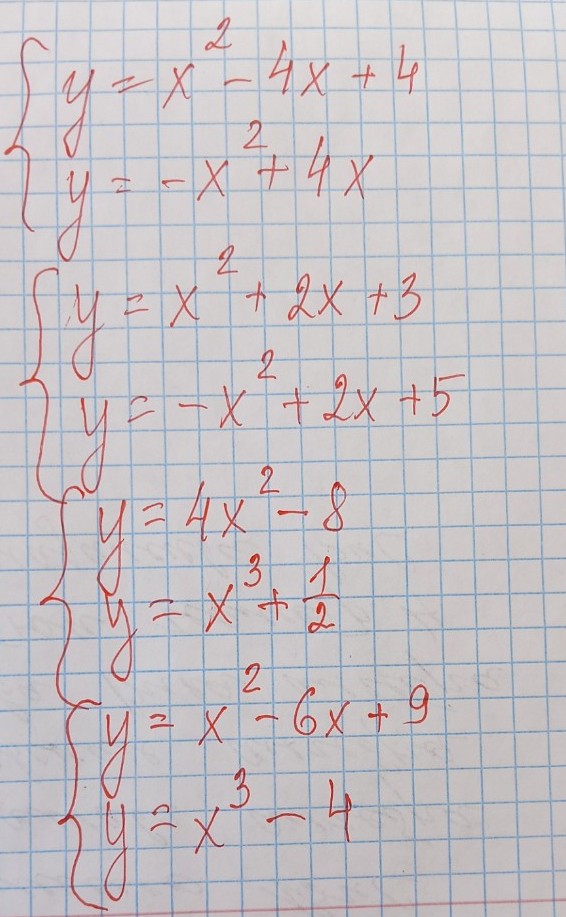 y = x² - 4x + 4
y = -x² + 4x
y = x² + 2x + 3
y = -x² + 2x + 5
y = 4x² - 8
y = x³ + 1/2
y = x² - 6x + 9
y = x³ - 4